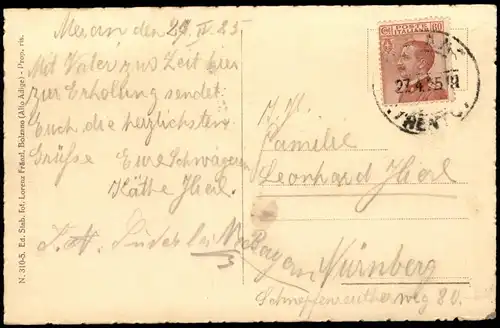 Meran den 29. IV. 25
Mit Vater zur Zeit hier
zur Erholung sendet
Euch die herzlichsten
Grüße Eure Schwägerin
Käthe Hierl
N. 310-5. Ed. Stab. fot. Lorenz Fränd, Bolzano (Alto Adige) - Prop. ris.
POSTE ITALIANE
60
27.4.25
(TRENTO)
Familie
Leonhard Hierl
Nürnberg
Bayern
Schnepfenreutherweg 80.